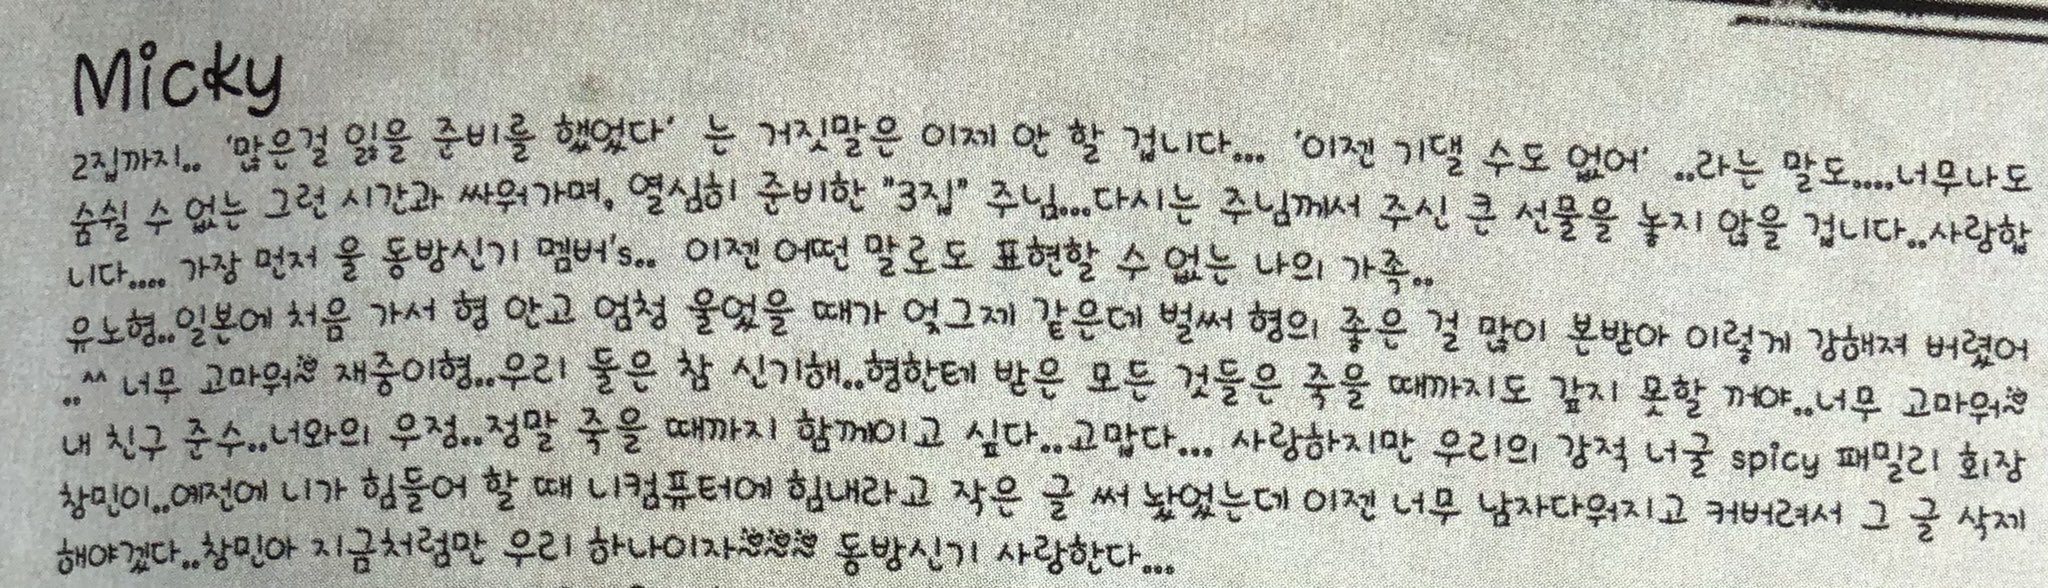 Micky
2집까지.. '많은걸 잃을 준비를 했었다' 는 거짓말은 이제 안 할 겁니다... '이젠 기댈 수도 없어' ..라는 말도....너무나도
숨쉴 수 없는 그런 시간과 싸워가며, 열심히 준비한 "3집" 주님...다시는 주님께서 주신 큰 선물을 놓지 않을 겁니다..사랑합
니다.... 가장 먼저 울 동방신기 멤버's.. 이젠 어떤 말로도 표현할 수 없는 나의 가족..
유노형..일본에 처음 가서 형 안고 엄청 울었을 때가 엊그제 같은데 벌써 형의 좋은 걸 많이 본받아 이렇게 강해져 버렸어
..^^ 너무 고마워~ 재중이형..우리 둘은 참 신기해..형한테 받은 모든 것들은 죽을 때까지도 갚지 못할 꺼야..너무 고마워~
내 친구 준수..너와의 우정..정말 죽을 때까지 함께이고 싶다..고맙다... 사랑하지만 우리의 강적 너굴 spicy 패밀리 회장
창민이..예전에 니가 힘들어 할 때 니컴퓨터에 힘내라고 작은 글 써 놨었는데 이젠 너무 남자다워지고 커버려서 그 글 삭제
해야겠다..창민아 지금처럼만 우리 하나이자~~~ 동방신기 사랑한다...